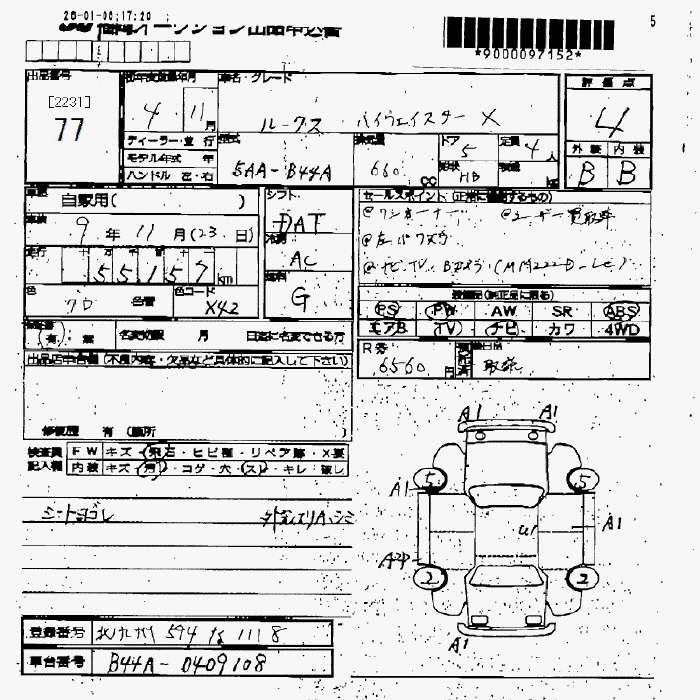 26-01-08;17:20
福岡オークション出品申込書
5
*9000097152*
出品番号
[2231]
77
初年度登録年月
4 年 11 月
ディーラー・並行
モデル年式 年
ハンドル 左・右
車名・グレード
ルークス ハイウェイスター X
型式
5AA-B44A
排気量
660 CC
ドア
5
形状
HB
定員
4 人
積載
kg
評価点
4
外装 内装
B B
車歴
自家用( )
車検
9 年 11 月 (23 日)
走行
十 万 千 百 十 一
55157 km
色
クロ
色替
色コード
X42
シフト
DAT
冷房
AC
燃料
G
セールスポイント (正常に機能するもの)
@ワンオーナー @ユーザー買取車
@左パワスラ
@ナビ、TV、Bカメラ(MM222D-Le)
装備品(純正品に限る)
PS PW AW SR ABS
エアB TV ナビ カワ 4WD
有 ・ 無
名変期限 月 日迄に名変できる方
R券
6560 円
取説
出品店申告欄 (不具内容・欠品など具体的に記入して下さい)
修復歴 有 (箇所
検査員
記入欄
FW キズ・飛石・ヒビ種・リペア跡・X要
内装 キズ・汚・コゲ・穴・ス・キレ・破し
シートヨゴレ
A1 A1
5 5
A1
A1
U1
A2P
2 2
A1
登録番号
北九州 594 な 1118
車台番号
B44A-0409108